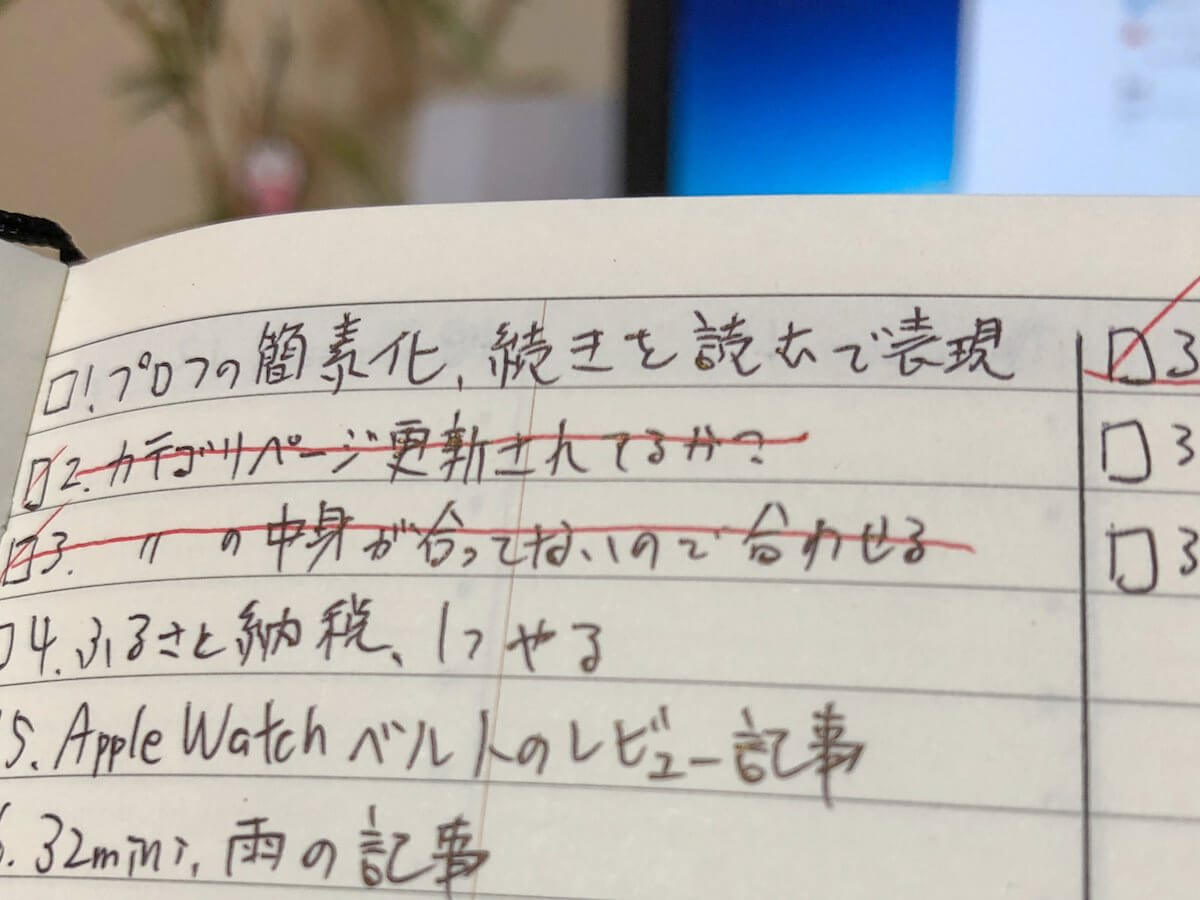 □1.プロフの簡素化、続きを読むで表現
□2.カテゴリページ更新されてるか?
□3. 〃 の中身が合ってないので合わせる
□4.ふるさと納税、1つやる
5.Apple Watchベルトのレビュー記事
6.32mini,雨の記事
□3
□3
□3